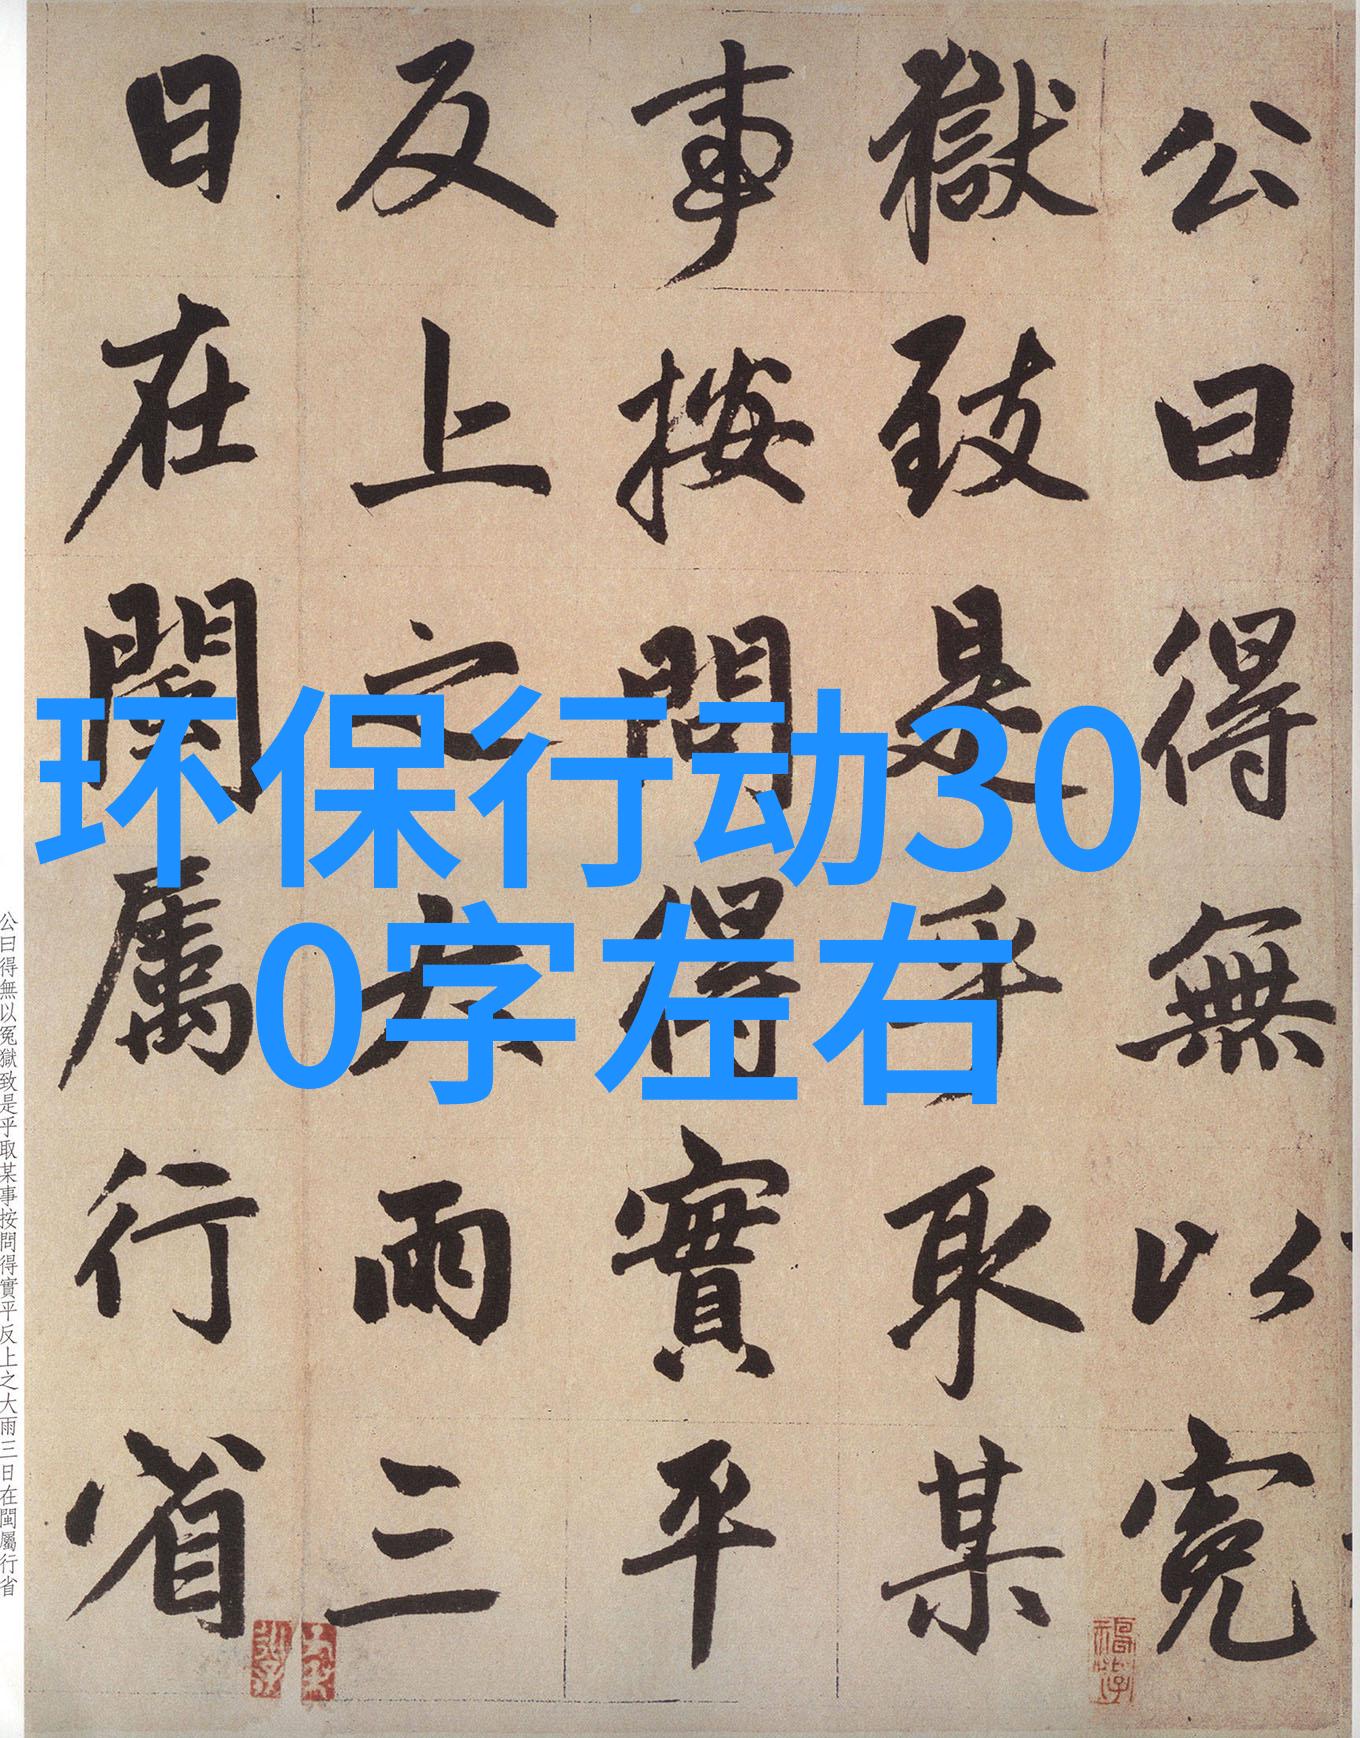 公曰得無以冤
獄致是乎取某
事按問得實平
反上之大雨三
日在閩屬行省
环保行动30
0字左右
公曰得無以冤獄致是乎取某事按問得實平反上之大雨三日在閩屬行省